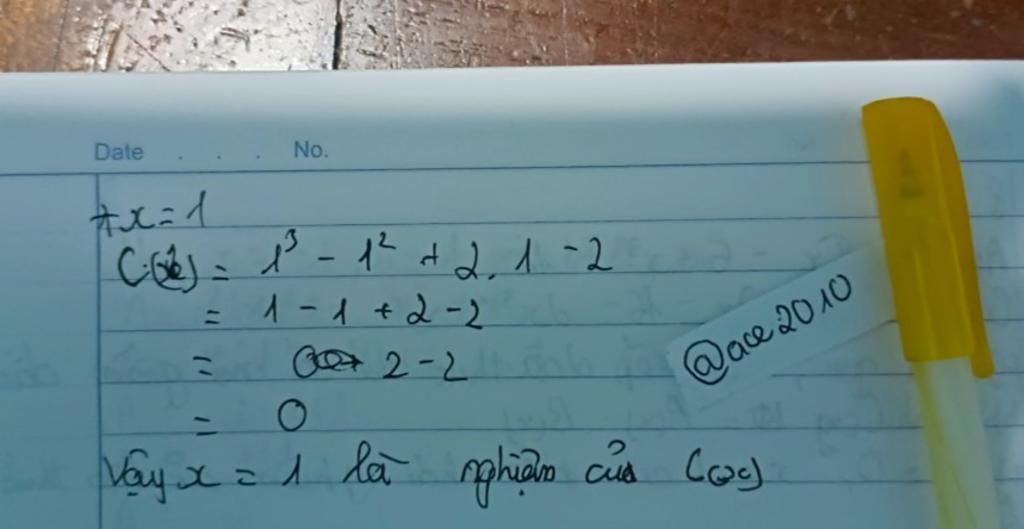 Date . . . No.
+ x = 1
C(x) = 1³ - 1² + 2.1 - 2
= 1 - 1 + 2 - 2
= 2 - 2
= 0
Vậy x = 1 là nghiệm của C(x)
@ace2010